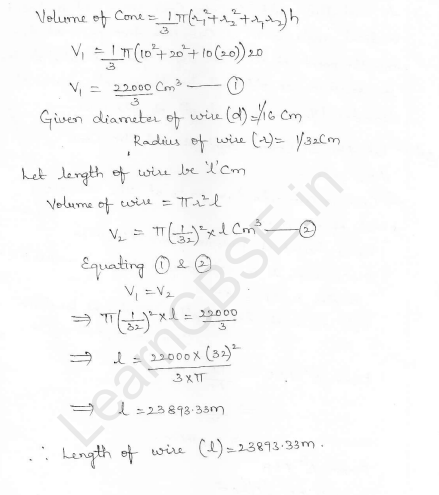 Volume of Cone = 1/3 π(r₁² + r₂² + r₁r₂)h
V₁ = 1/3 π(10² + 20² + 10(20))20
V₁ = 22000/3 Cm³ —— ①
Given diameter of wire (d) = 1/16 Cm
Radius of wire (r) = 1/32 Cm
Let length of wire be 'l' Cm
Volume of wire = πr²l
V₂ = π(1/32)² × l Cm³ —— ②
Equating ① & ②
V₁ = V₂
⇒ π(1/32)² × l = 22000/3
⇒ l = 22000 × (32)² / 3 × π
⇒ l = 23893.33m
∴ Length of wire (l) = 23893.33m.
LearnCBSE.in